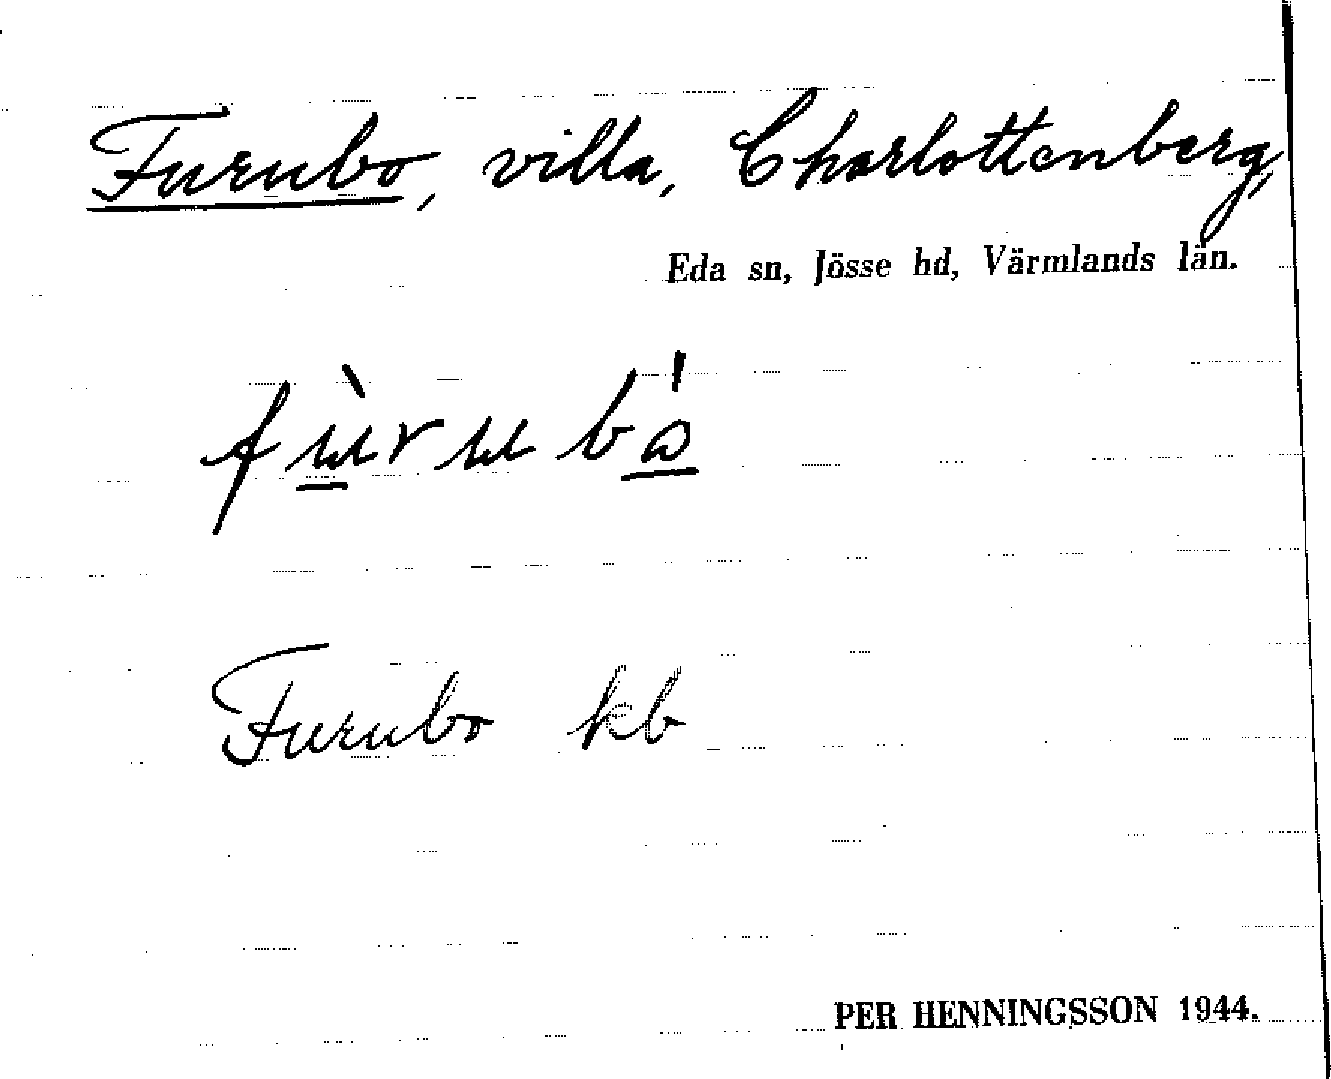 Furubo, villa, Charlottenberg,
Eda sn, Jösse hd, Värmlands län.
Furubo kb
PER HENNINGSSON 1944.